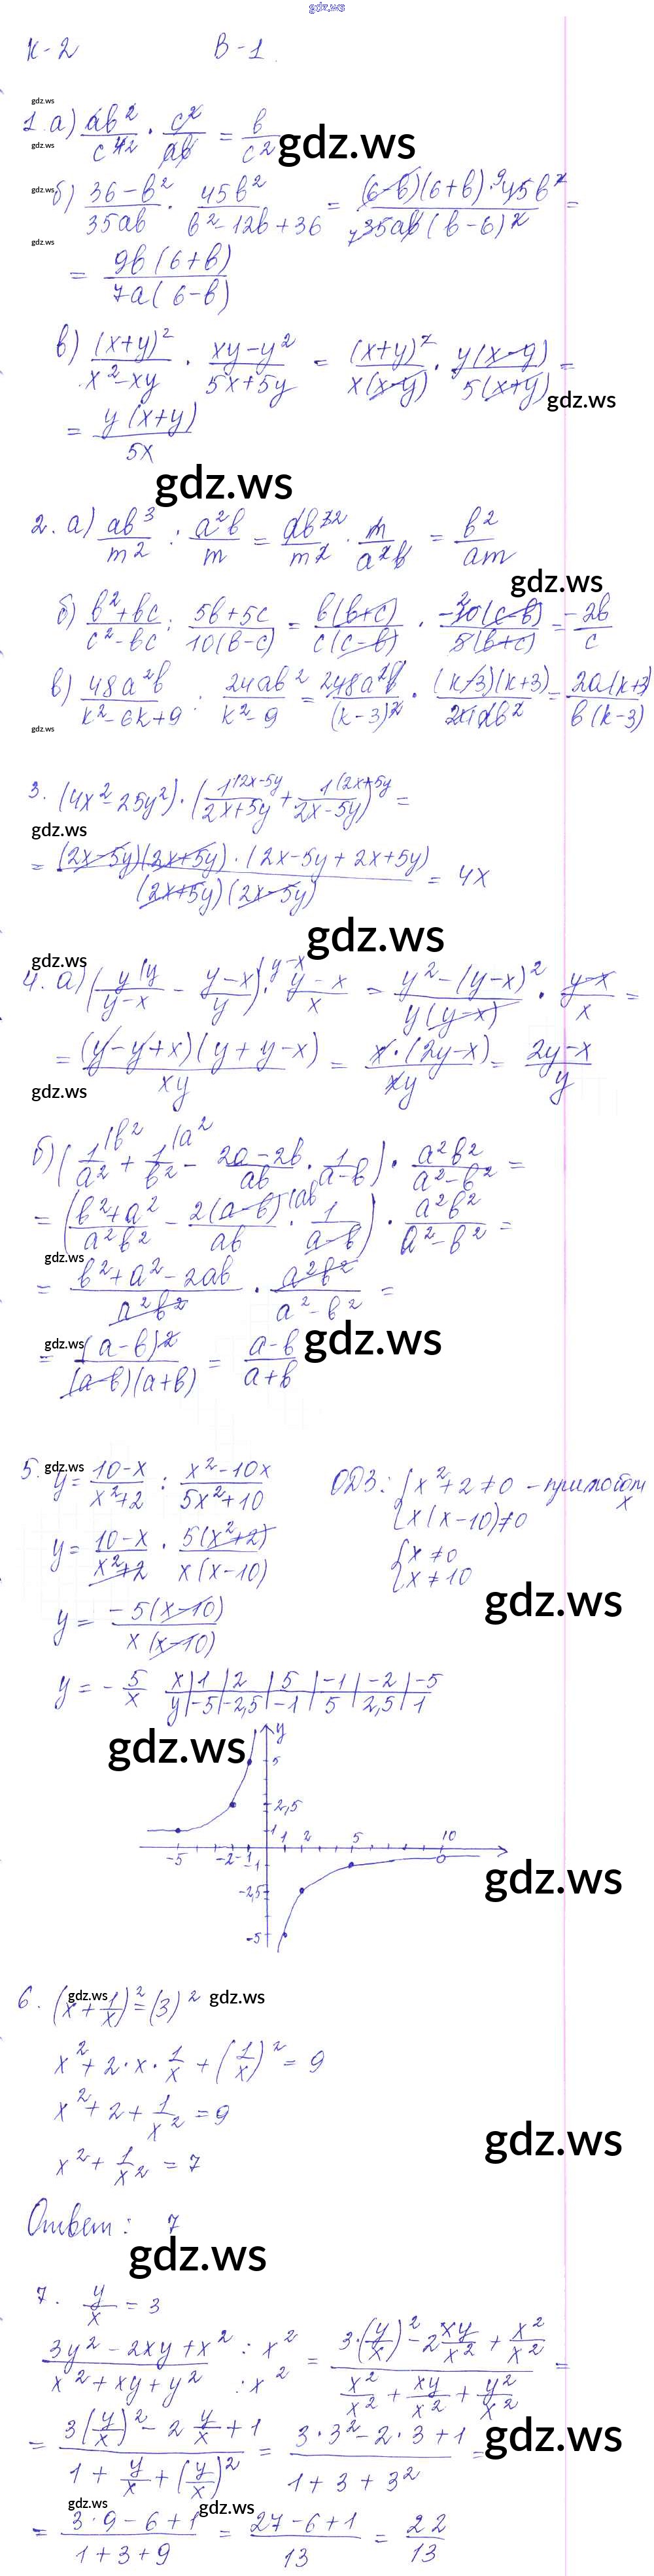 gdz.ws
К-2 В-1.
gdz.ws
1. а) ab²/c⁴ · c²/ab = b/c² gdz.ws
gdz.ws
gdz.ws б) (36-b²)/35ab · 45b²/(b²-12b+36) = ((6-b)(6+b)·⁹45b²)/(₇35ab(b-6)²) =
gdz.ws
= 9b(6+b)/7a(6-b)
в) (x+y)²/(x²-xy) · (xy-y²)/(5x+5y) = (x+y)²/x(x-y) · y(x-y)/5(x+y) =
gdz.ws
= y(x+y)/5x
gdz.ws
2. а) ab³/m² : a²b/m = ab³/m² · m/a²b = b²/am
gdz.ws
б) (b²+bc)/(c²-bc) : (5b+5c)/10(b-c) = b(b+c)/c(c-b) · -10(c-b)/5(b+c) = -2b/c
в) 48a²b/(k²-6k+9) : 24ab²/(k²-9) = 48a²b/(k-3)² · (k-3)(k+3)/24ab² = 2a(k+3)/b(k-3)
gdz.ws
3. (4x²-25y²)·(1/(2x+5y) + 1/(2x-5y)) =
gdz.ws
= (2x-5y)(2x+5y)·(2x-5y+2x+5y)/(2x+5y)(2x-5y) = 4x
gdz.ws
gdz.ws
4. а) (y/(y-x) - (y-x)/y) · (y-x)/x = (y²-(y-x)²)/y(y-x) · (y-x)/x =
= (y-y+x)(y+y-x)/xy = x·(2y-x)/xy = (2y-x)/y
gdz.ws
б) (1/a² + 1/b² - (2a-2b)/ab · 1/(a-b)) · a²b²/(a²-b²) =
= ((b²+a²)/a²b² - 2(a-b)/ab · 1/(a-b)) · a²b²/(a²-b²) =
gdz.ws
= (b²+a²-2ab)/a²b² · a²b²/(a²-b²) =
gdz.ws
= (a-b)²/(a-b)(a+b) = (a-b)/(a+b) gdz.ws
5. gdz.ws y = (10-x)/(x²+2) : (x²-10x)/(5x²+10) ОДЗ: { x²+2≠0 - при любом x
x(x-10)≠0
y = (10-x)/(x²+2) · 5(x²+2)/x(x-10) { x≠0
x≠10
gdz.ws
y = -5(x-10)/x(x-10)
y = -5/x x | 1 | 2 | 5 | -1 | -2 | -5
y | -5 | -2,5 | -1 | 5 | 2,5 | 1
gdz.ws
y
5
2,5
1 1 2 5 10
-5 -2 -1 -1
gdz.ws
-2,5
-5
6. (x + 1/x)² = (3)² gdz.ws gdz.ws
x² + 2·x·1/x + (1/x)² = 9
x² + 2 + 1/x² = 9
gdz.ws
x² + 1/x² = 7
Ответ: 7
gdz.ws
7. y/x = 3
(3y²-2xy+x²)/(x²+xy+y²) :x² :x² = (3·(y/x)² - 2xy/x² + x²/x²)/(x²/x² + xy/x² + y²/x²) =
= (3(y/x)² - 2 y/x + 1)/(1 + y/x + (y/x)²) = (3·3²-2·3+1)/(1+3+3²) =
gdz.ws
gdz.ws gdz.ws
= (3·9-6+1)/(1+3+9) = (27-6+1)/13 = 22/13